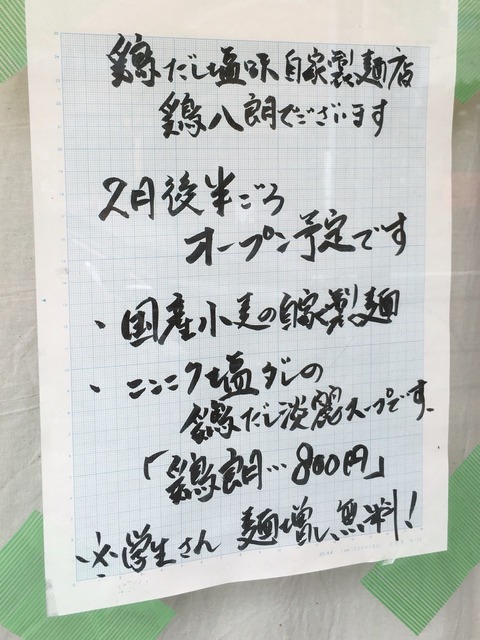 鶏だし塩味自家製麺店
鶏八朗でございます
2月後半ごろ
オープン予定です
・国産小麦の自家製麺
・こンニク塩ダレの
鶏だし淡麗スープです。
「鶏朗…800円」
※学生さん 麺増し無料!